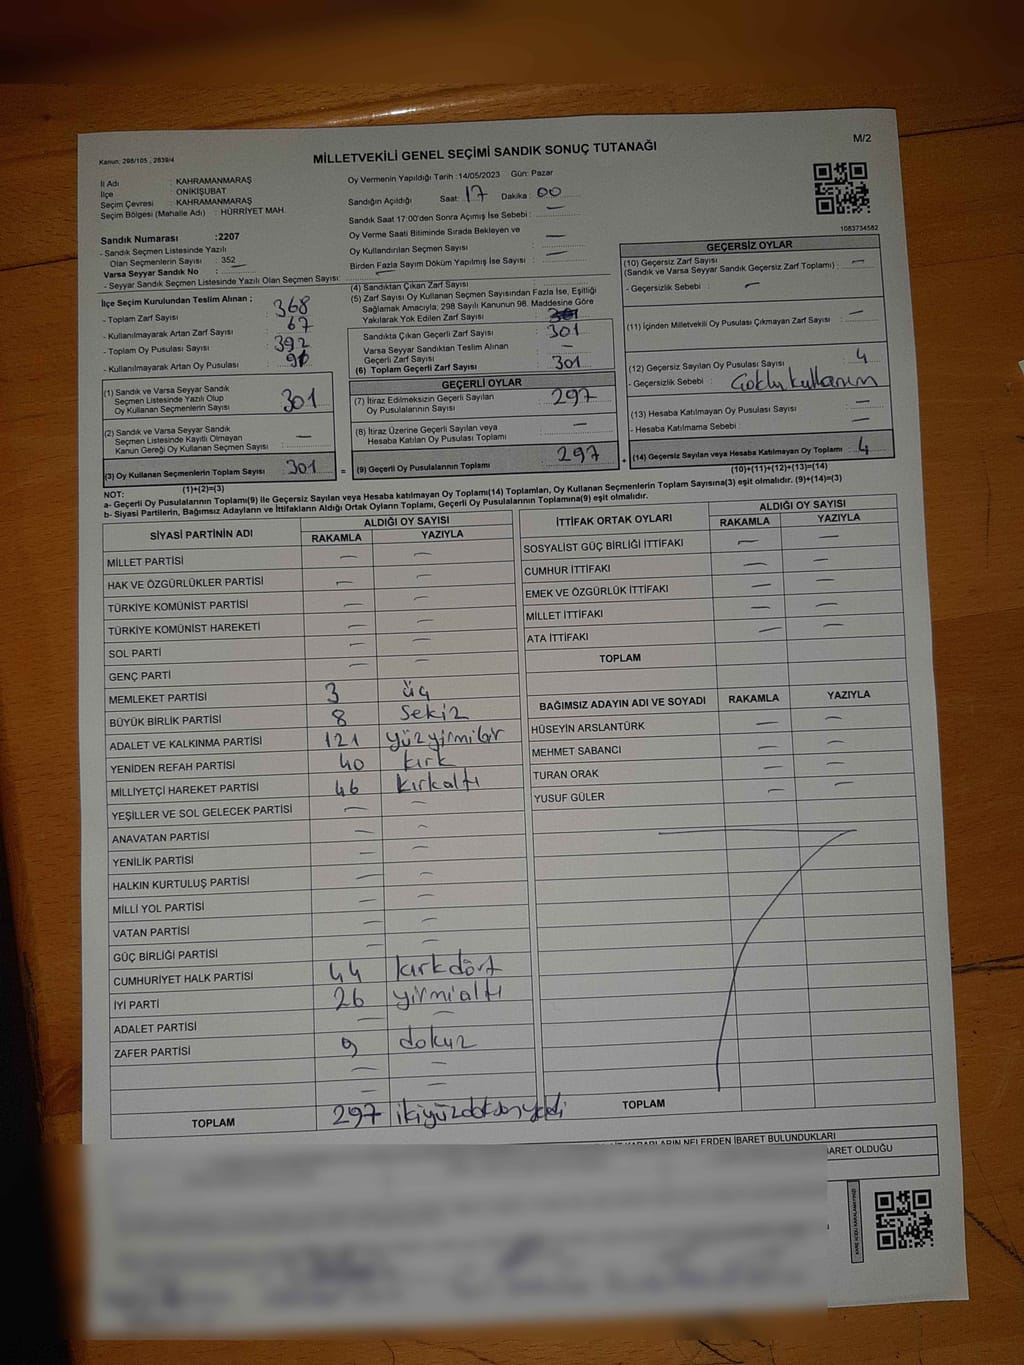 M/2
Kanun: 298/105 , 2839/4
MİLLETVEKİLİ GENEL SEÇİMİ SANDIK SONUÇ TUTANAĞI
İl Adı : KAHRAMANMARAŞ
İlçe : ONİKİŞUBAT
Seçim Çevresi : KAHRAMANMARAŞ
Seçim Bölgesi (Mahalle Adı) : HÜRRİYET MAH.
Sandık Numarası :2207
- Sandık Seçmen Listesinde Yazılı
Olan Seçmenlerin Sayısı : 352
Varsa Seyyar Sandık No :
- Seyyar Sandık Seçmen Listesinde Yazılı Olan Seçmen Sayısı: –
Oy Vermenin Yapıldığı Tarih :14/05/2023 Gün: Pazar
Sandığın Açıldığı Saat: 17 Dakika : 00
Sandık Saat 17:00'den Sonra Açımış İse Sebebi : –
Oy Verme Saati Bitiminde Sırada Bekleyen ve
Oy Kullandırılan Seçmen Sayısı : –
Birden Fazla Sayım Döküm Yapılmış İse Sayısı : –
1083734582
İlçe Seçim Kurulundan Teslim Alınan ;
- Toplam Zarf Sayısı : 368
- Kullanılmayarak Artan Zarf Sayısı : 67
- Toplam Oy Pusulası Sayısı : 392
- Kullanılmayarak Artan Oy Pusulası :
(1) Sandık ve Varsa Seyyar Sandık
Seçmen Listesinde Yazılı Olup
Oy Kullanan Seçmenlerin Sayısı 301
(2) Sandık ve Varsa Seyyar Sandık
Seçmen Listesinde Kayıtlı Olmayan
Kanun Gereği Oy Kullanan Seçmen Sayısı –
(3) Oy Kullanan Seçmenlerin Toplam Sayısı 301 =
(1)+(2)=(3)
(4) Sandıktan Çıkan Zarf Sayısı :
(5) Zarf Sayısı Oy Kullanan Seçmen Sayısından Fazla İse, Eşitliği
Sağlamak Amacıyla; 298 Sayılı Kanunun 98. Maddesine Göre
Yakılarak Yok Edilen Zarf Sayısı :
Sandıkta Çıkan Geçerli Zarf Sayısı 301
Varsa Seyyar Sandıktan Teslim Alınan
Geçerli Zarf Sayısı –
(6) Toplam Geçerli Zarf Sayısı : 301
GEÇERLİ OYLAR
(7) İtiraz Edilmeksizin Geçerli Sayılan
Oy Pusulalarının Sayısı : 297
(8) İtiraz Üzerine Geçerli Sayılan veya
Hesaba Katılan Oy Pusulası Toplamı : –
(9) Geçerli Oy Pusulalarının Toplamı : 297 +
GEÇERSİZ OYLAR
(10) Geçersiz Zarf Sayısı : –
(Sandık ve Varsa Seyyar Sandık Geçersiz Zarf Toplamı)
- Geçersizlik Sebebi : –
(11) İçinden Milletvekili Oy Pusulası Çıkmayan Zarf Sayısı : –
(12) Geçersiz Sayılan Oy Pusulası Sayısı : 4
- Geçersizlik Sebebi : Çoklu kullanım
(13) Hesaba Katılmayan Oy Pusulası Sayısı : –
- Hesaba Katılmama Sebebi : –
(14) Geçersiz Sayılan veya Hesaba Katılmayan Oy Toplamı : 4
(10)+(11)+(12)+(13)=(14)
NOT:
a- Geçerli Oy Pusulalarının Toplamı(9) ile Geçersiz Sayılan veya Hesaba katılmayan Oy Toplamı(14) Toplamları, Oy Kullanan Seçmenlerin Toplam Sayısına(3) eşit olmalıdır. (9)+(14)=(3)
b- Siyasi Partilerin, Bağımsız Adayların ve İttifakların Aldığı Ortak Oyların Toplamı, Geçerli Oy Pusulalarının Toplamına(9) eşit olmalıdır.
SİYASİ PARTİNİN ADI ALDIĞI OY SAYISI
RAKAMLA YAZIYLA
MİLLET PARTİSİ – –
HAK VE ÖZGÜRLÜKLER PARTİSİ – –
TÜRKİYE KOMÜNİST PARTİSİ – –
TÜRKİYE KOMÜNİST HAREKETİ – –
SOL PARTİ – –
GENÇ PARTİ – –
MEMLEKET PARTİSİ 3 üç
BÜYÜK BİRLİK PARTİSİ 8 sekiz
ADALET VE KALKINMA PARTİSİ 121 yüzyirmibir
YENİDEN REFAH PARTİSİ 40 kırk
MİLLİYETÇİ HAREKET PARTİSİ 46 kırkaltı
YEŞİLLER VE SOL GELECEK PARTİSİ – –
ANAVATAN PARTİSİ – –
YENİLİK PARTİSİ – –
HALKIN KURTULUŞ PARTİSİ – –
MİLLİ YOL PARTİSİ – –
VATAN PARTİSİ – –
GÜÇ BİRLİĞİ PARTİSİ – –
CUMHURİYET HALK PARTİSİ 44 kırkdört
İYİ PARTİ 26 yirmialtı
ADALET PARTİSİ – –
ZAFER PARTİSİ 9 dokuz
– –
– –
TOPLAM 297 ikiyüzdoksanyedi
İTTİFAK ORTAK OYLARI ALDIĞI OY SAYISI
RAKAMLA YAZIYLA
SOSYALİST GÜÇ BİRLİĞİ İTTİFAKI – –
CUMHUR İTTİFAKI – –
EMEK VE ÖZGÜRLÜK İTTİFAKI – –
MİLLET İTTİFAKI – –
ATA İTTİFAKI – –
TOPLAM
BAĞIMSIZ ADAYIN ADI VE SOYADI RAKAMLA YAZIYLA
HÜSEYİN ARSLANTÜRK – –
MEHMET SABANCI – –
TURAN ORAK – –
YUSUF GÜLER – –
TOPLAM
KARARLARIN NELERDEN İBARET BULUNDUKLARI
İBARET OLDUĞU